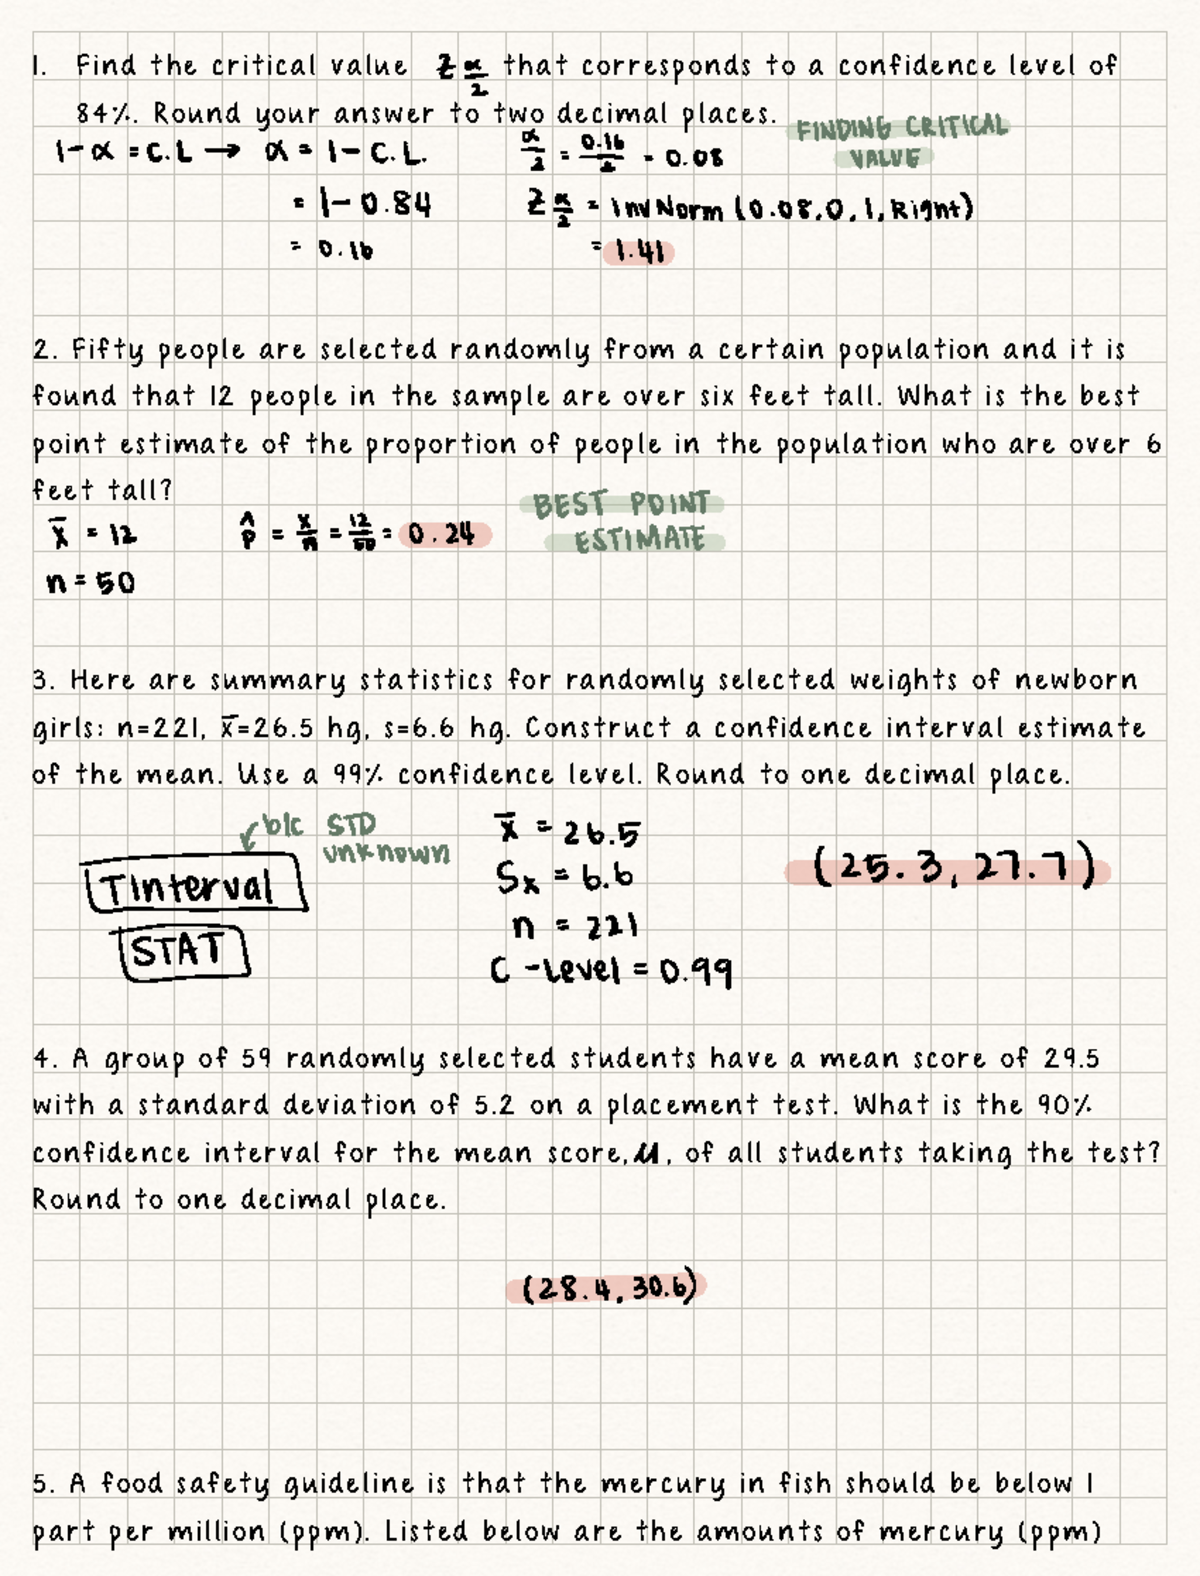 1. Find the critical value Z α/2 that corresponds to a confidence level of
84%. Round your answer to two decimal places.
FINDING CRITICAL
VALUE
1-α = C.L → α = 1 - C.L.
= 1 - 0.84
= 0.16
α/2 = 0.16/2 = 0.08
Z α/2 = InvNorm (0.08, 0, 1, Right)
= 1.41
2. Fifty people are selected randomly from a certain population and it is
found that 12 people in the sample are over six feet tall. What is the best
point estimate of the proportion of people in the population who are over 6
feet tall?
BEST POINT
ESTIMATE
x̄ = 12
p̂ = x/n = 12/50 = 0.24
n = 50
3. Here are summary statistics for randomly selected weights of newborn
girls: n=221, x̄=26.5 hg, s=6.6 hg. Construct a confidence interval estimate
of the mean. Use a 99% confidence level. Round to one decimal place.
b/c STD
unknown
TInterval
STAT
x̄ = 26.5
Sx = 6.6
n = 221
C-Level = 0.99
(25.3, 27.7)
4. A group of 59 randomly selected students have a mean score of 29.5
with a standard deviation of 5.2 on a placement test. What is the 90%
confidence interval for the mean score, μ, of all students taking the test?
Round to one decimal place.
(28.4, 30.6)
5. A food safety guideline is that the mercury in fish should be below 1
part per million (ppm). Listed below are the amounts of mercury (ppm)